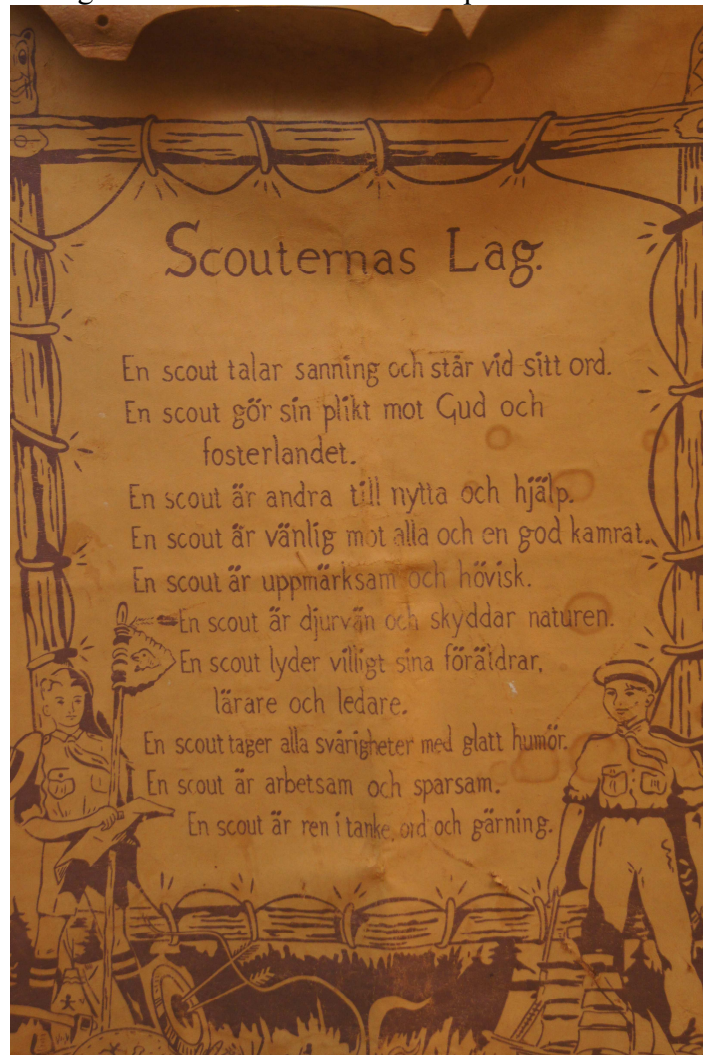 Scouternas Lag.
En scout talar sanning och står vid sitt ord.
En scout gör sin plikt mot Gud och
fosterlandet.
En scout är andra till nytta och hjälp.
En scout är vänlig mot alla och en god kamrat.
En scout är uppmärksam och hövisk.
En scout är djurvän och skyddar naturen.
En scout lyder villigt sina föräldrar,
lärare och ledare.
En scout tager alla svårigheter med glatt humör.
En scout är arbetsam och sparsam.
En scout är ren i tanke, ord och gärning.